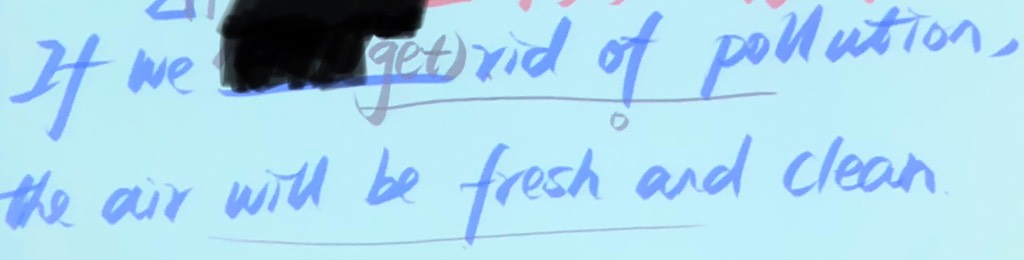 If we (get) rid of pollution,
the air will be fresh and clean.